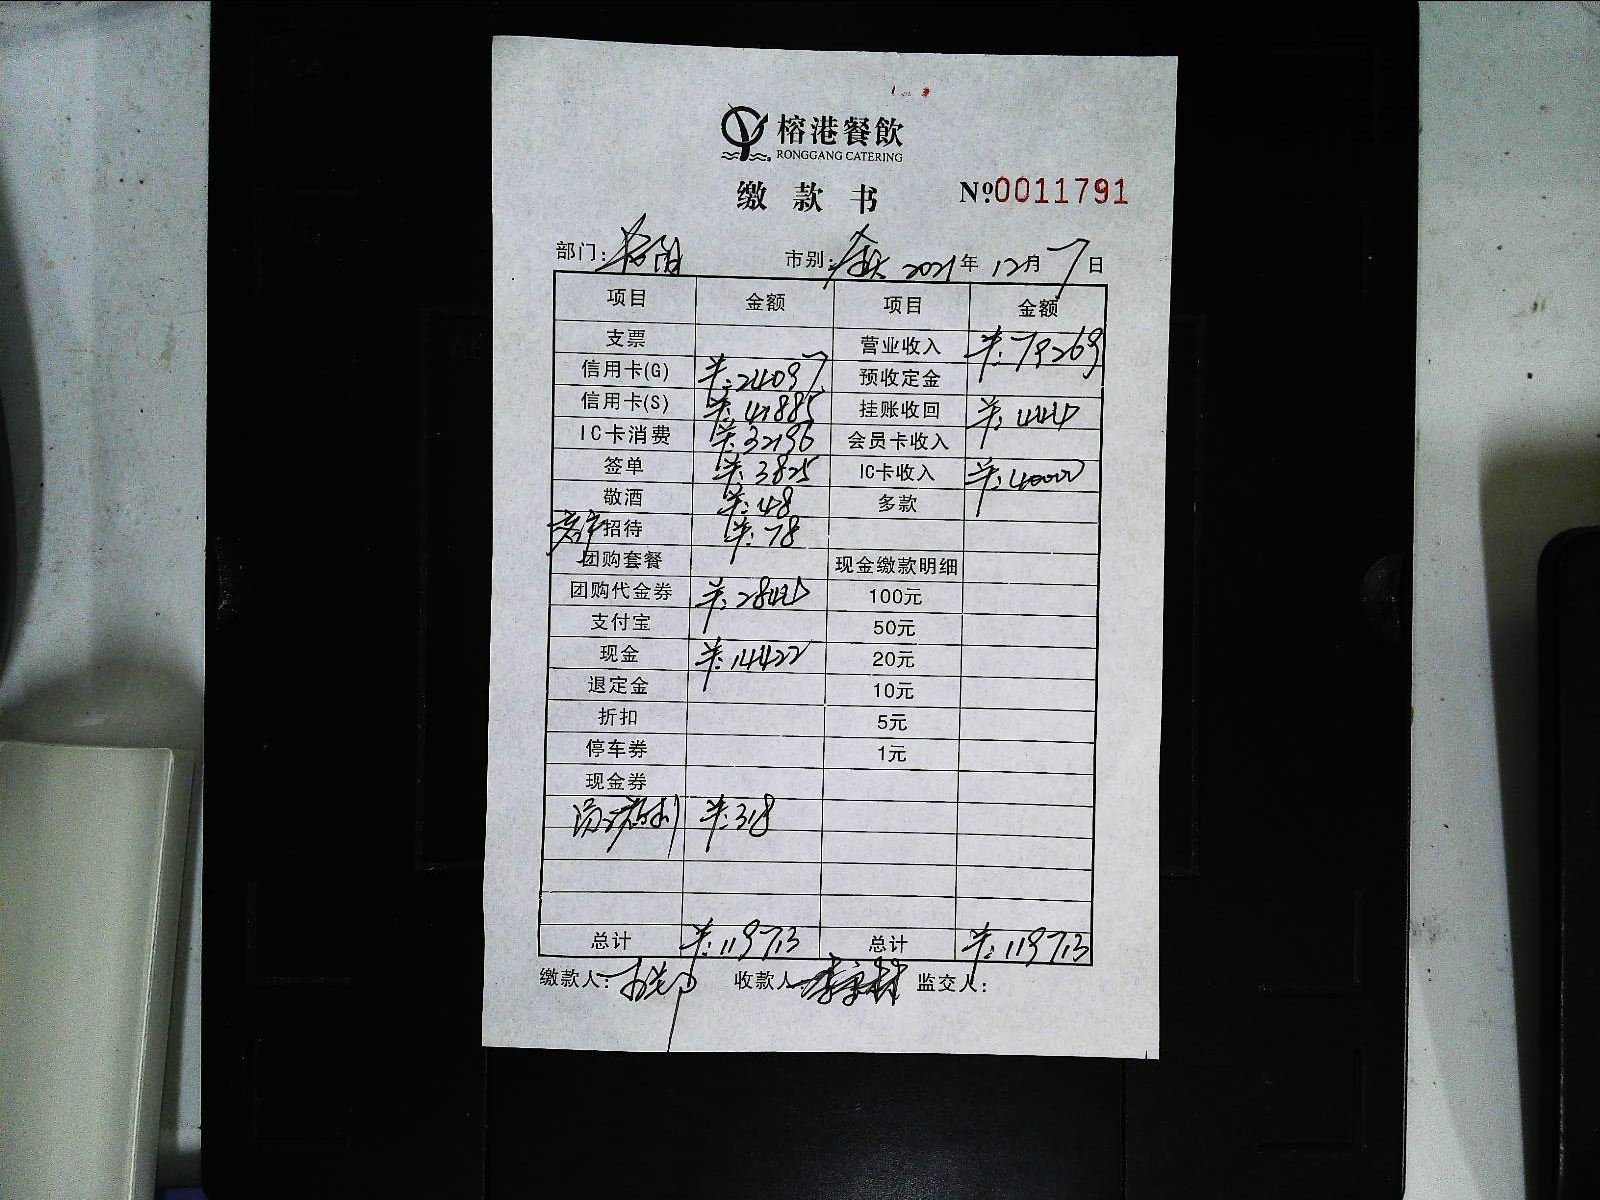 榕港餐飲
RONGGANG CATERING
缴款书 №0011791
部门: 市别: 2021年12月7日
项目 金额 项目 金额
支票 营业收入 ¥:79269
信用卡(G) ¥:24097 预收定金
信用卡(S) ¥:41885 挂账收回 ¥:444
IC卡消费 ¥:32196 会员卡收入
签单 ¥:3825 IC卡收入 ¥:40000
敬酒 ¥:48 多款
招待 ¥:78
团购套餐 现金缴款明细
团购代金券 ¥: 100元
支付宝 50元
现金 ¥:14422 20元
退定金 10元
折扣 5元
停车券 1元
现金券
¥:318
总计 ¥:119713 总计 ¥:119713
缴款人: 收款人: 监交人: